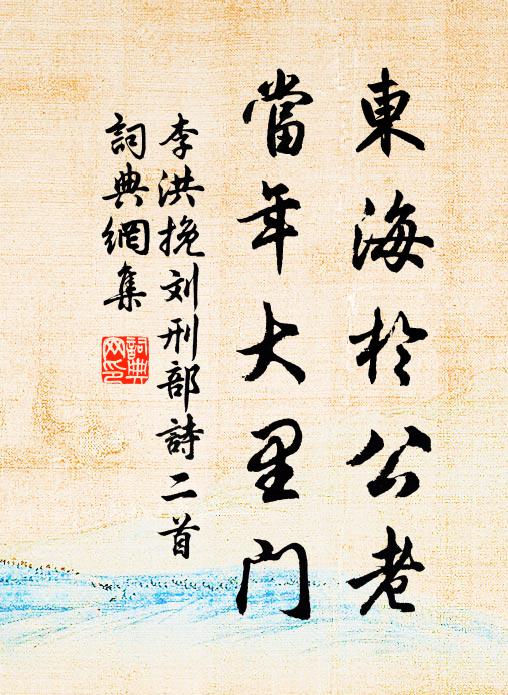 東海於公老
當年大里門
李洪挽刘刑部詩二首
詞典網集
詞典
网印